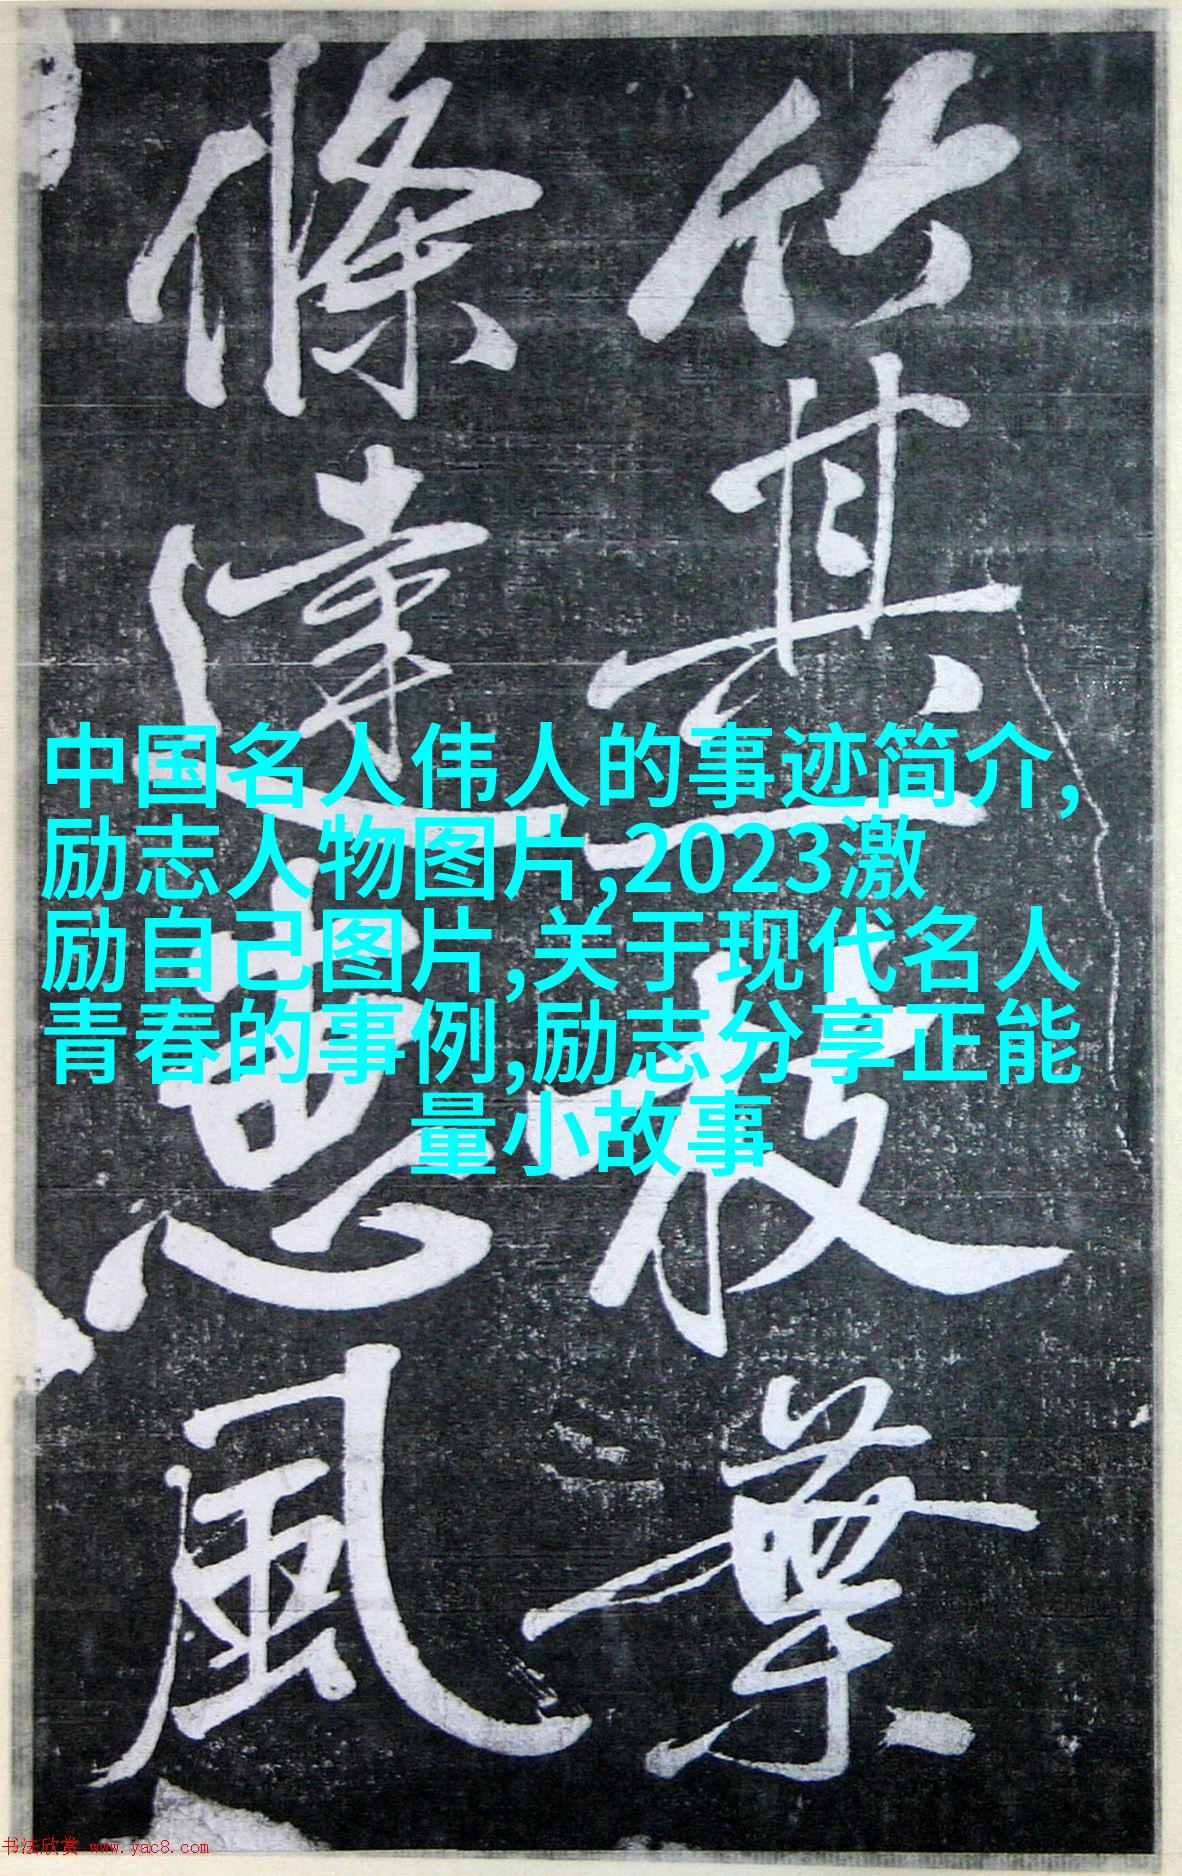 竹其枝葉
條達惠風
中国名人伟人的事迹简介,
励志人物图片,2023激
励自己图片,关于现代名人
青春的事例,励志分享正能
量小故事
书法欣赏 www.yac8.com